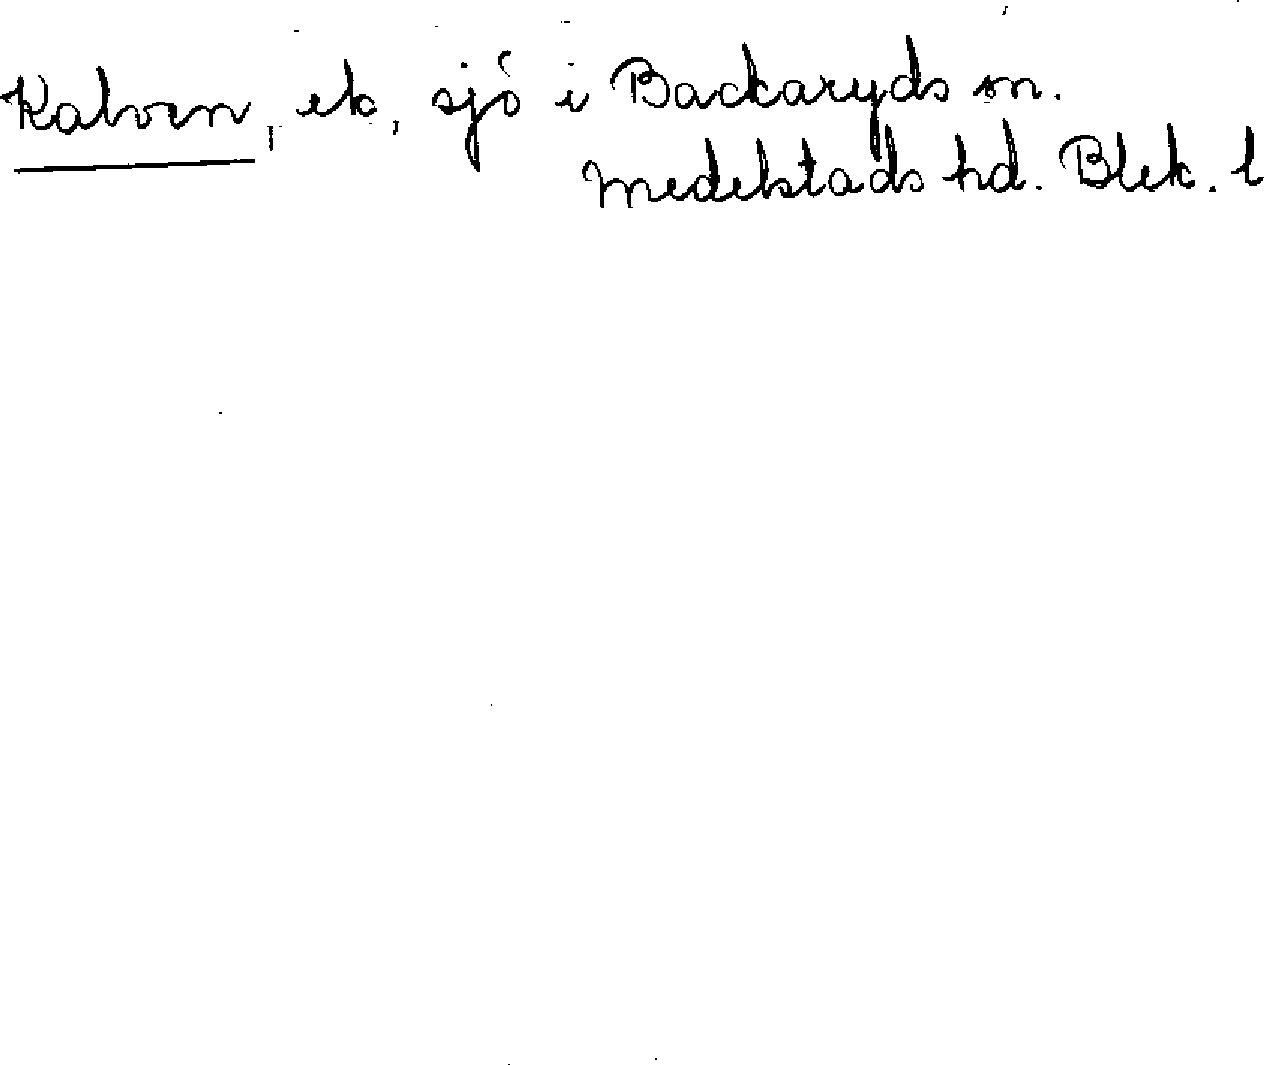 Kalven, ek, sjö i Backaryds sn.
Medelstads hd. Blek. l